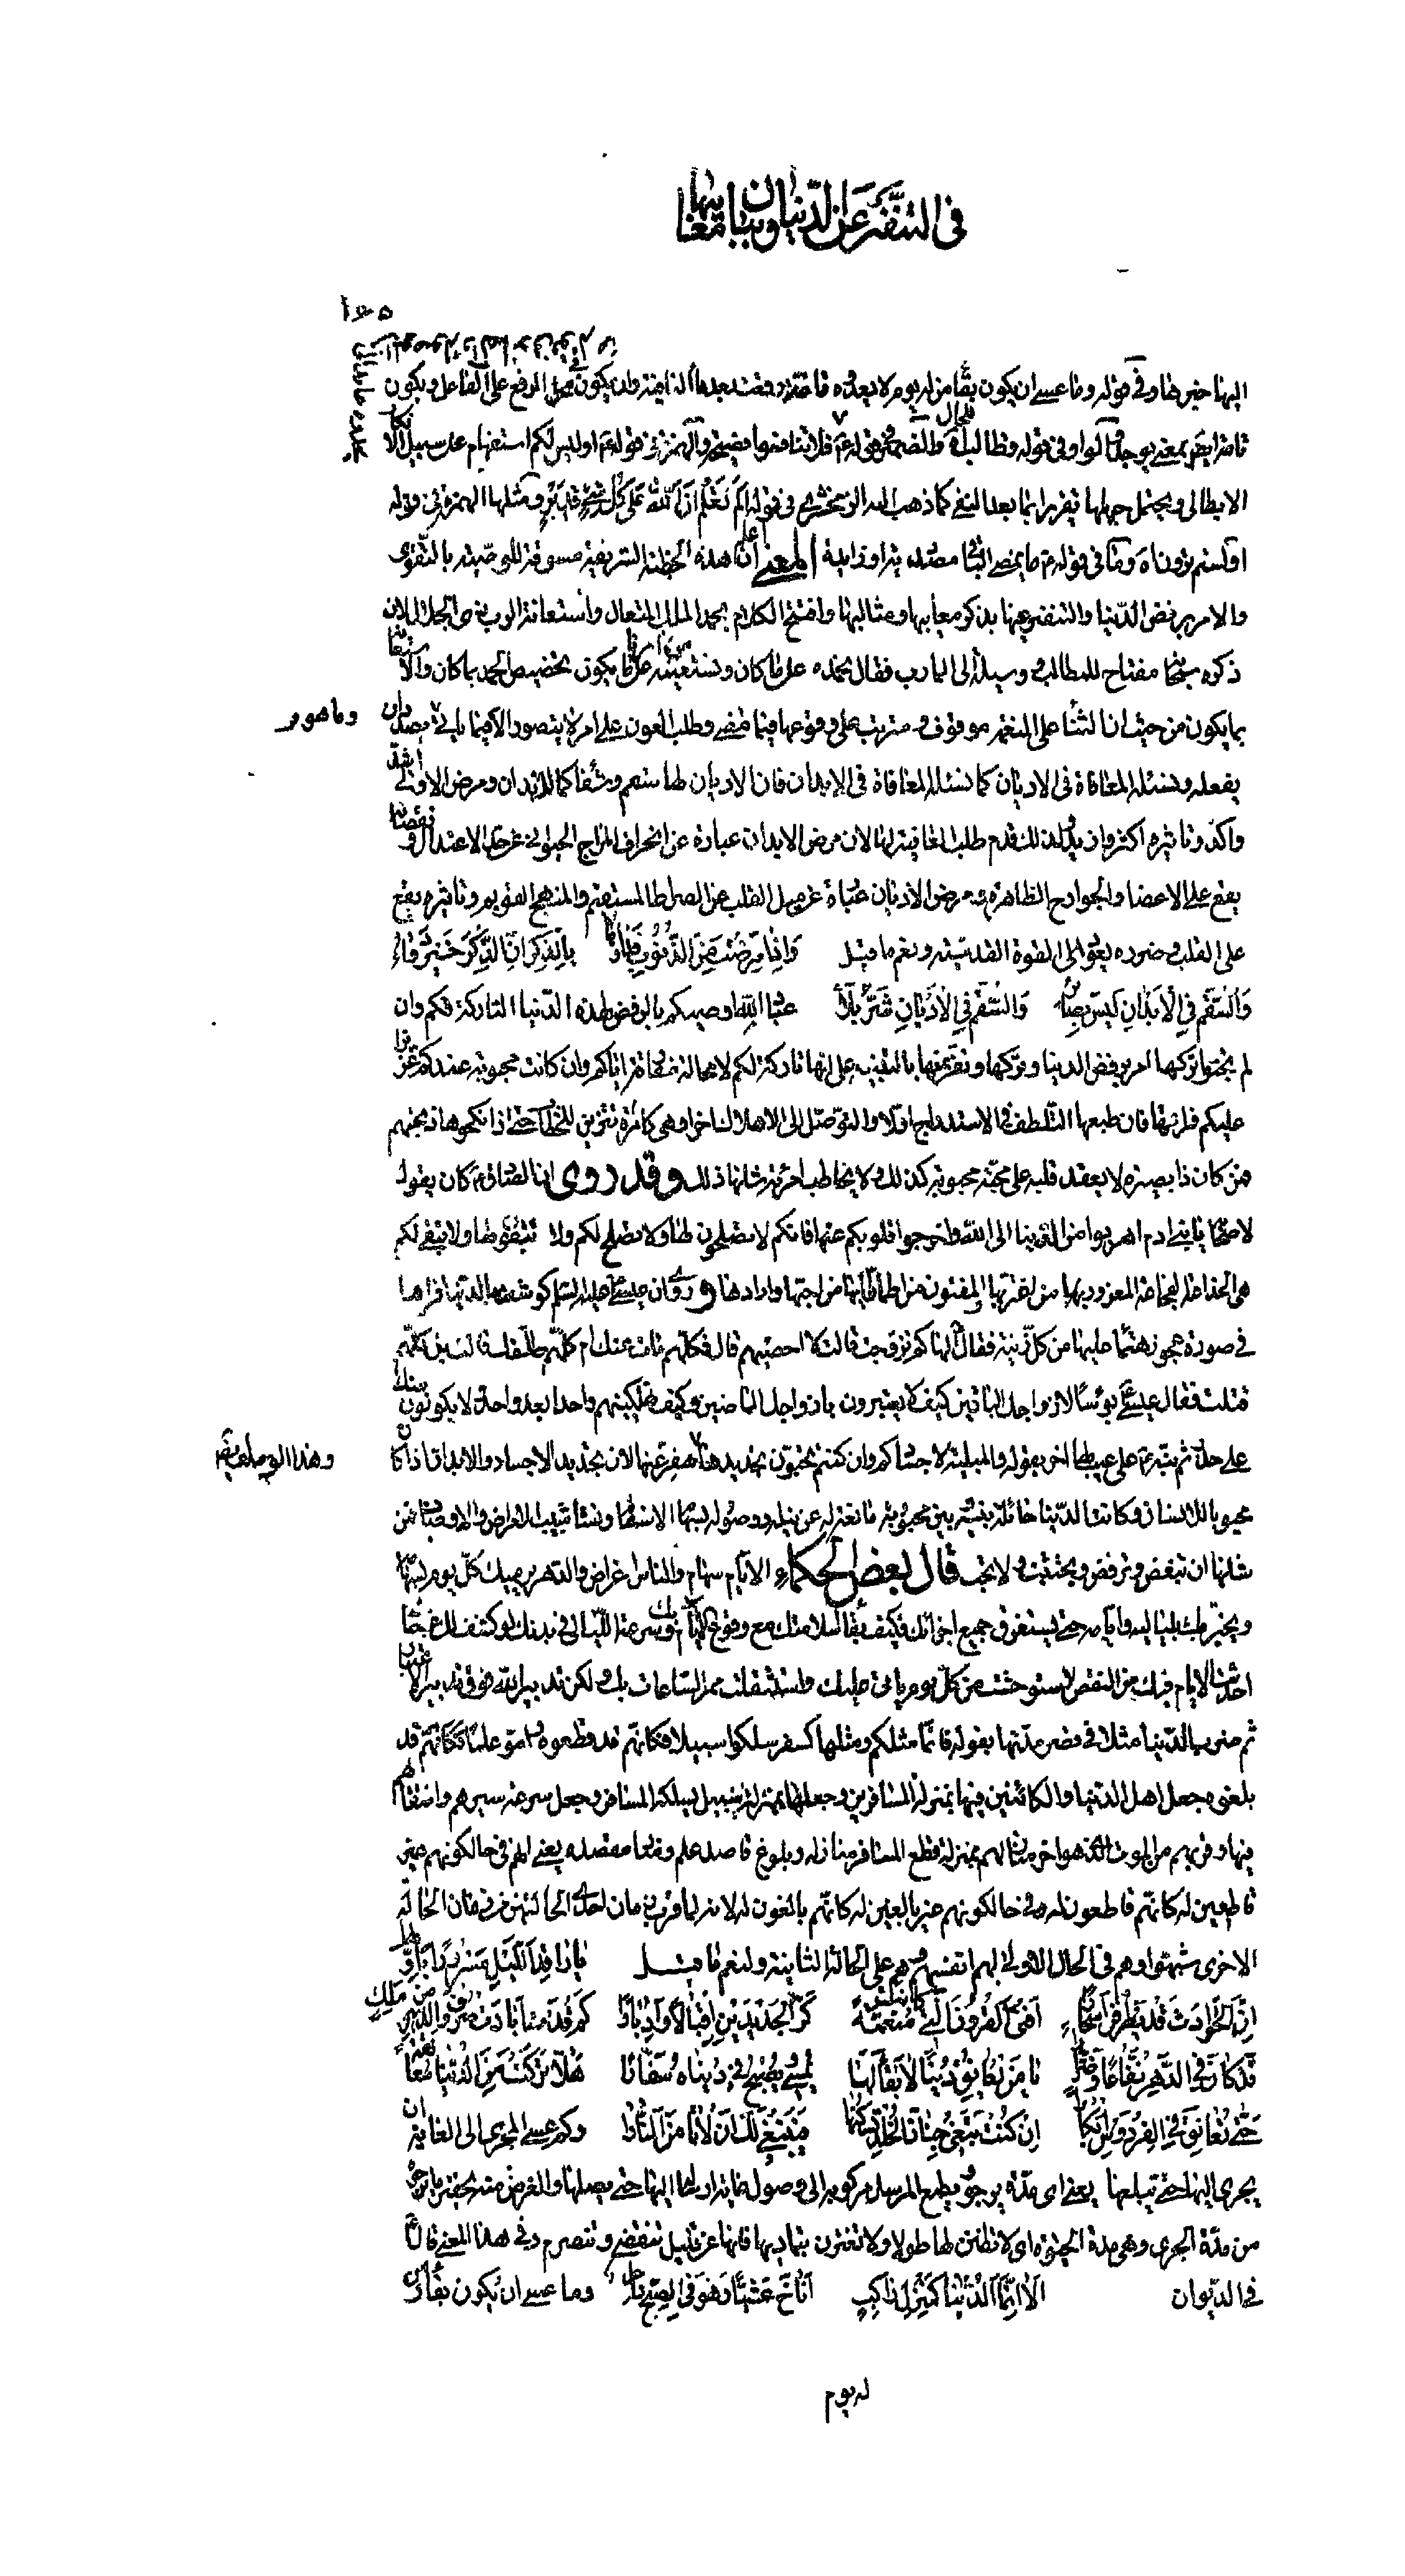 في التنفّر عن الدّنيا وبيان معايبها
اليها خبرها وفي قوله وما عسى ان يكون بقاء من له يوم لا يعدوه
في قوله وطالب
الابطالي ويحتمل جعلها تقريرا لما بعد النفي كما ذهب اليه الزمخشري في قوله الم تعلم انّ اللّه على كلّ شيء قدير ومثلها الهمزة في قوله
اولستم ترون اه وما في قوله ما يمضي الباقي مصدرية او زايدة المعنى اعلم انّ هذه الخطبة الشريفة مسوقة للوصيّة بالتّقوى
والامر برفض الدّنيا والتنفير عنها بذكر معايبها ومثالبها وافتتح الكلام بحمد الملك المتعال واستعانة الرب ذي الجلال لان
ذكره سبحانه مفتاح للمطالب ووسيلة الى المارب فقال نحمده على ما كان ونستعينه من امرنا على ما يكون تخصيص الحمد بما كان والاستعانة
بما يكون من حيث ان الثناء على النعم موقوف ومترتب على وقوعها فيما مضى وطلب العون على امر لا يتصور الا فيما ياتي وما هو بصدد ان
يفعله ونسئله المعافاة في الاديان كما نسئله المعافاة في الابدان فان الاديان لها سقم وشفاء كما للابدان ومرض الاولى اشدّ
واكد وتاثيره اكثر وازيد لذلك قدم طلب المعافية لها لان مرض الابدان عبارة عن انحراف المزاج الحيواني عن حد الاعتدال ونقصانه
يقع على الاعضاء والجوارح الظاهرة ومرض الاديان عبارة عن ميل القلب عن الصراط المستقيم والمنهج القويم وتاثيره يقع
على القلب وضرره يعود الى القوة القدسيّة ونعم ما قيل وَاِذا مَرِضْتَ مِنَ الذُّنُوبِ فَداوِها بِالذِّكْرِ اِنَّ الذِّكْرَ خَيْرُ دَواءِ
وَالسُّقْمُ فِي الْاَبْدانِ لَيْسَ بِضائِرٍ وَالسُّقْمُ فِي الْاَدْيانِ شَرُّ بَلاءِ عباد اللّه اوصيكم بالرفض لهذه الدّنيا التاركة لكم وان
لم تحبّوا تركها امر برفض الدنيا وتركها
عليكم فراقها فان طبعها التّلطف في الاستدراج اوّلا والتوصّل الى الاهلاك اخرا وهي كامرئة تتزين للخطّاب حتى اذا نكحوها ذبحتهم
فمن كان ذا بصيرة لا يعقد قلبه على محبّة محبوبة كذلك ولا يخاطب امرئة شانها ذلك وقد روي ان الصادق كان يقول
لاصحابه يا بني ادم اهربوا من الدّنيا الى اللّه واخرجوا قلوبكم عنها فانكم لا تصلحون لها ولا تصلح لكم ولا تبقون لها ولا تبقى لكم
هي الخداعة الفجاعة المغرور من اغتر بها المفتون من اطمأن اليها من احبها وارادها وروي ان عيسى عليه السّلم كوشف بالدنيا فراها
في صورة عجوز هتماء عليها من كلّ زينة فقال لها كم تزوجت قالت لا احصيهم قال فكلّهم مات عنك ام كلّهم طلّقك قالت بل كلّهم
قتلت فقال عيسى بؤسا لازواجك الباقين كيف لا يعتبرون بازواجك الماضين وكيف تهلكينهم واحدا بعد واحد ولا يكونون منك
على حذر ثم نبّه على عيبها الاخر بقوله والمبلية لاجسامكم وان كنتم تحبّون تجديدها وهذا الوصف
محبوبا للانسان وكانت الدّنيا حائلة بينه وبين محبوبه مانعة له عن نيله ووصوله
شانها ان تبغض وترفض ويجتنب ولا تحب قال بعض الحكماء الايام سهام والناس اغراض والدّهر يرميك كلّ يوم بسهامه
ويخترمك بلياليه وايامه حتى يستغرق جميع اجزائك فكيف بقاء سلامتك مع وقوع الايّام بك وسرعة اللّيالي في بدنك لو كشف لك عمّا
احدثت الايّام فيك من النقص لاستوحشت من كلّ يوم ياتي عليك واستثقلت ممر السّاعات بك ولكن تدبير اللّه فوق تدبير الاعتبار
ثم ضرب للدّنيا مثلا في قصر مدّتها بقوله فانّما مثلكم ومثلها كسفر سلكوا سبيلا فكانّهم قد قطعوه وامّوا علما فكانّهم قد
بلغوه جعل اهل الدّنيا والكائنين فيها بمنزلة المسافرين وجعلها بمنزلة سبيل يسلكه المسافر وجعل سرعة سيرهم وانتقالهم
فيها وقربهم من الموت الذي هو اخر منازلهم بمنزلة قطع المسافر منازله وبلوغ قاصد علم وقعا مقصده يعني انهم في حالكونهم غير
قاطعين له كانّهم قاطعون له وفي حالكونهم غير بالغين له كانّهم بالغون له لانه لما قرب زمان احدى الحالتين من زمان الحالة
الاخرى شبّهوا وهم في الحال الاولى بهم انفسهم وهم على الحالة الثانية ولنعم ما قيل يا راقِدَ اللَّيْلِ مَسْرُوراً بِاَوَّلِهِ
اِنَّ الْحَوادِثَ قَدْ يَطْرُقْنَ اَسْحاراً اَفْنَى الْقُرُونَ الَّتِي كانَتْ مُنَعَّمَةً كَرُّ الْجَدِيدَيْنِ اِقْبالاً وَاِدْباراً كَمْ قَدْ اَبادَتْ صُرُوفُ الدَّهْرِ مِنْ مَلِكٍ
قَدْ كانَ فِي الدَّهْرِ نَفّاعاً وَضَرّاراً يا مَنْ يُعانِقُ دُنْياً لا بَقاءَ لَها يُمْسِي وَيُصْبِحُ فِي دُنْياهُ سَفّاراً هَلاّ تَرَكْتَ مِنَ الدُّنْيا مُعانَقَةً
حَتّى تُعانِقَ فِي الْفِرْدَوْسِ اَبْكاراً اِنْ كُنْتَ تَبْغِي جِنانَ الْخُلْدِ تَسْكُنُها فَيَنْبَغِي لَكَ اَنْ لا تَأْمَنَ النّارا وكم عسى المجري الى الغاية ان
يجري اليها حتى يبلغها يعني اي مدّة يرجو
من مدّة الجري وهي مدة الحيوة اي لا تظنن لها طولا ولا تغترن بتماديها فانها عن قليل تنقضي وتنصرم وفي هذا المعنى قال
في الدّيوان اَلا اِنَّما الدُّنْيا كَمَنْزِلِ راكِبٍ اَناخَ عَشِيّاً وَهُوَ فِي الصُّبْحِ راحِلُ وما عسى ان يكون بقاء من
له يوم